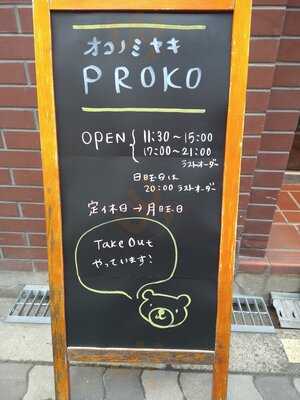 オコノミヤキ
PROKO
OPEN { 11:30～15:00
17:00～21:00
ラストオーダー
日曜日は
20:00 ラストオーダー
定休日→月曜日
Take Out
やっています!